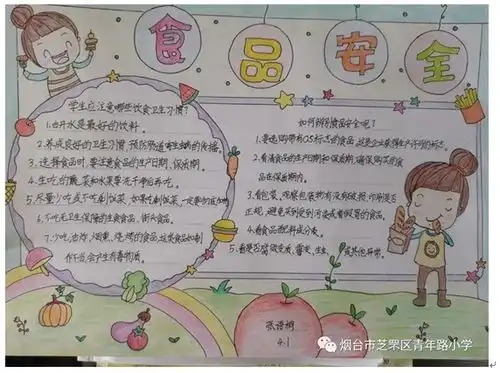 食品安全
学生应注意哪些饮食卫生习惯?
1.白开水是最好的饮料。
2.养成良好的卫生习惯,预防肠道寄生虫病的传播。
3.选择食品时,要注意食品的生产日期、保质期。
4.生吃的蔬菜和水果要洗干净后再吃。
5.尽量少吃或不吃剩饭菜,如需吃剩饭菜,一定要彻底加热
6.不吃无卫生保障的生食食品、街头食品。
7.少吃油炸、烟熏、烧烤的食品,这类食品如制
作不当会产生有毒物质。
如何辨别食品安全呢?
1.要选购带有QS标志的食品,这是企业获得生产许可的标志。
2.看清食品的生产日期和保质期,确保购买的食
品在保质期内。
3.看包装,观察包装物有没有破损,印刷是否
正规,避免买到受到污染或者假冒的食品。
4.看食品配料成分表。
5.看是否腐败变质、霉变、生虫、或其他异常。
张语桐
4.1
烟台市芝罘区青年路小学